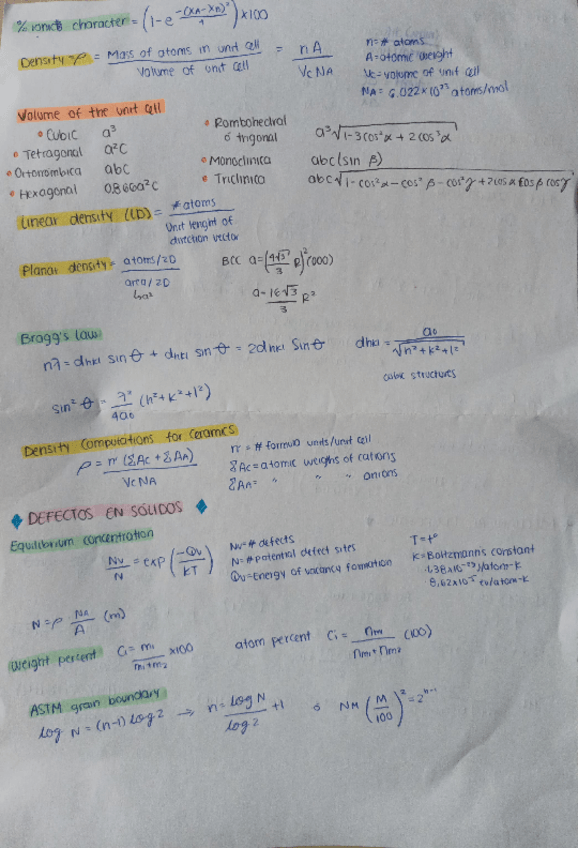 % ionic character = (1-e^(-(XA-XB)²/4)) x100
Density ρ = Mass of atoms in unit cell / Volume of unit cell = nA / VcNA
n= # atoms
A= atomic weight
Vc= volume of unit cell
NA = 6.022x10²³ atoms/mol
Volume of the unit cell
• Cubic a³
• Tetragonal a²c
• Ortorrombica abc
• Hexagonal 0.866a²c
• Rombohedral ó trigonal a³√(1-3cos²α + 2cos³α)
• Monoclinica abc(sin β)
• Triclinica abc√(1-cos²α-cos²β-cos²γ+2cosα cosβ cosγ)
Linear density (LD) = # atoms / Unit lenght of direction vector
Planar density = atoms/2D / area/2D
↳a²
BCC a=(4√3/3 R)² (000)
a= 16√3/3 R²
Bragg's law
nλ = dhkl sin θ + dhkl sin θ = 2dhkl Sin θ
dhkl = a0 / √(h²+k²+l²)
cubic structures
sin² θ = λ²/4a0 (h²+k²+l²)
Density Computations for Ceramics
ρ = n' (ΣAc + ΣAA) / VcNA
n' = # formula units/unit cell
ΣAc = atomic weighs of cations
ΣAA = " " " anions
DEFECTOS EN SÓLIDOS
Equilibrium concentration
Nv/N = exp (-Qv/kT)
Nv= # defects
N= # potential defect sites
Qv= Energy of vacancy formation
T = t°
K= Boltzmann's constant
1.38x10⁻²³ J/atom-K
8.62x10⁻⁵ eV/atom-K
N = ρ NA/A (m)
weight percent Ci = m1/(m1+m2) x100
atom percent Ci = nm1/(nm1+nm2) (100)
ASTM grain boundary
log N = (n-1) log 2 → n = log N/log 2 +1 ó NM (M/100)² = 2ⁿ⁻¹